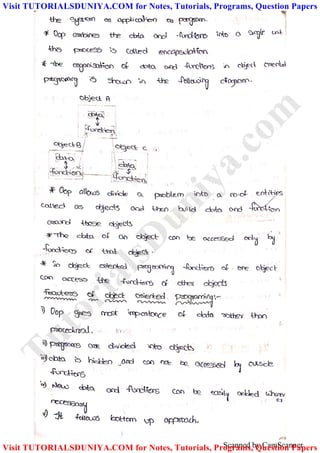 Visit TUTORIALSDUNIYA.COM for Notes, Tutorials, Programs, Question Papers
the system or application or program.
* Oop combines the data and functions into a single unit
this process is called encapsulation.
* the organisation of data and functions in object oriented
programing is shown in the following diagram.
object A
data
function
object B
object C
data
function
data
function
* Oop allows divide a problem into a no-of entities
called as objects and then build data and function
around these objects
* The data of an object can be accessed only by
functions of that object
* in object oriented programing functions of one object
can access the functions of other objects
Features of object oriented Programing:-
i) Oop gives most importance of data rather than
procedural.
ii) programs are divided into objects.
iii) data is hidden and can not be accessed by outside
functions
iv) New data and functions can be easily added when
necessary
v) It follows bottom up approach.
TutorialsDuniya.com
Scanned by CamScanner
Visit TUTORIALSDUNIYA.COM for Notes, Tutorials, Programs, Question Papers